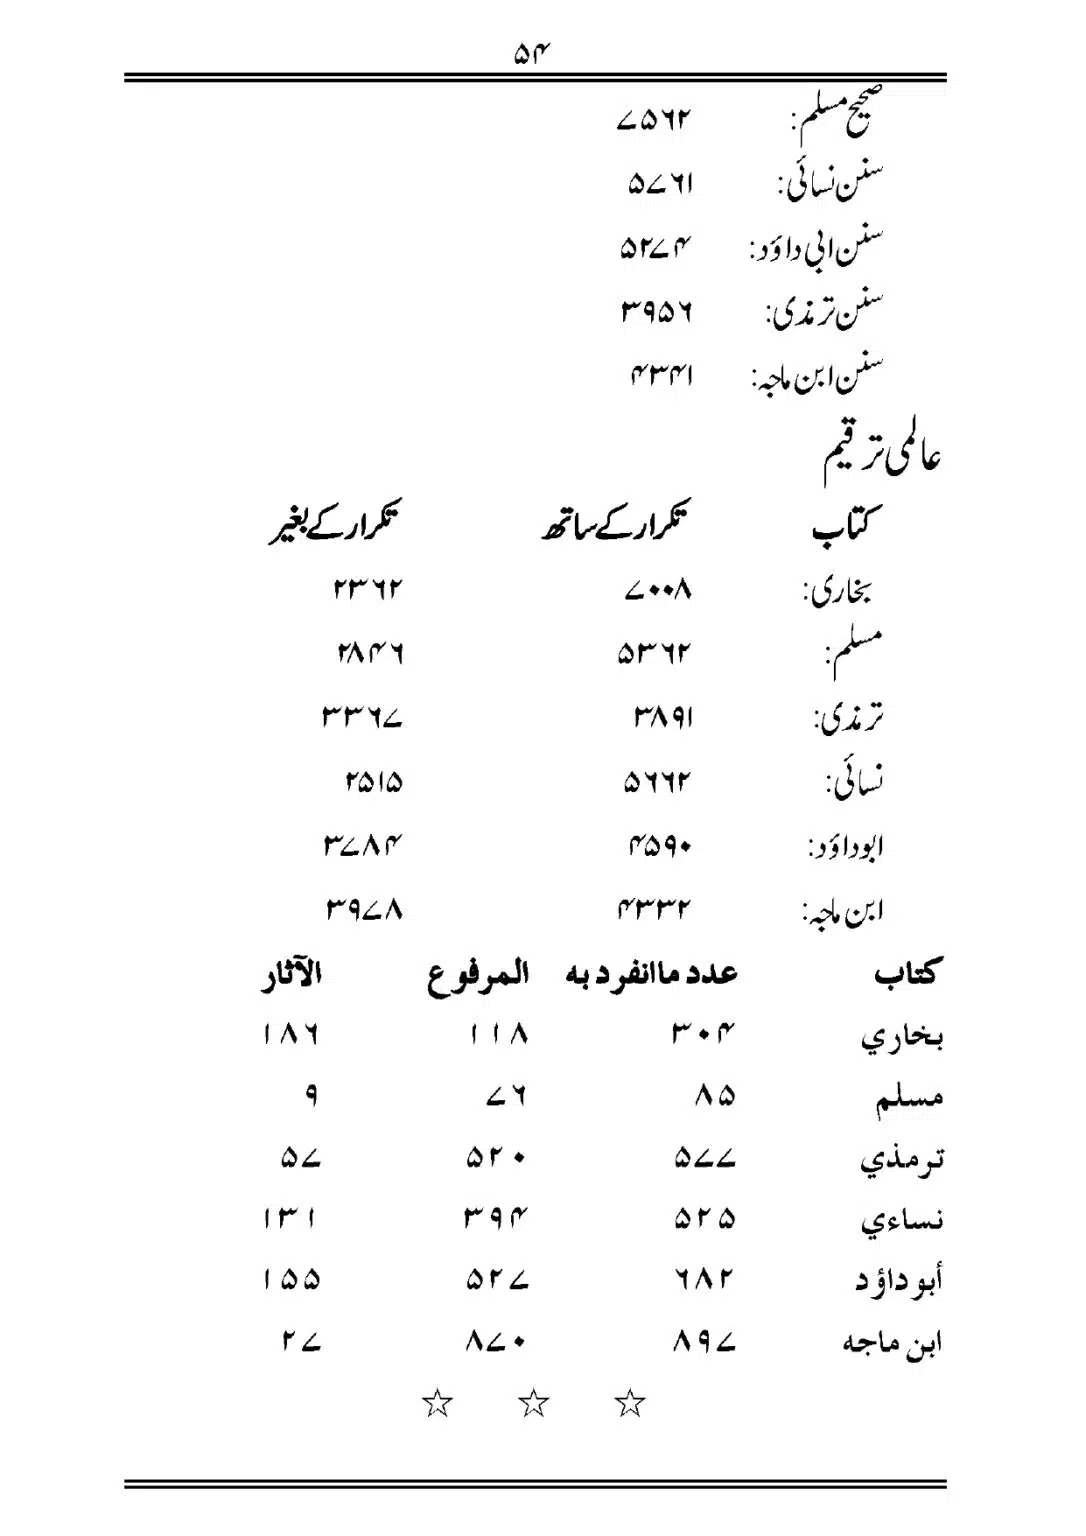 ۵۴
صحیح مسلم: ۷۵۶۲
سنن نسائی: ۵۷۶۱
سنن ابی داؤد: ۵۲۷۴
سنن ترمذی: ۳۹۵۶
سنن ابن ماجہ: ۴۳۴۱
عالمی ترقیم
کتاب تکرار کے ساتھ تکرار کے بغیر
بخاری: ۷۰۰۸ ۲۳۶۲
مسلم: ۵۳۶۲ ۲۸۴۶
ترمذی: ۳۸۹۱ ۳۳۶۷
نسائی: ۵۶۶۲ ۲۵۱۵
ابوداؤد: ۴۵۹۰ ۳۷۸۴
ابن ماجہ: ۴۳۳۲ ۳۹۷۸
کتاب عدد ماانفرد به المرفوع الآثار
بخاري ۳۰۴ ۱۱۸ ۱۸۶
مسلم ۸۵ ۷۶ ۹
ترمذي ۵۷۷ ۵۲۰ ۵۷
نساءي ۵۲۵ ۳۹۴ ۱۳۱
أبو داؤد ۶۸۲ ۵۲۷ ۱۵۵
ابن ماجه ۸۹۷ ۸۷۰ ۲۷